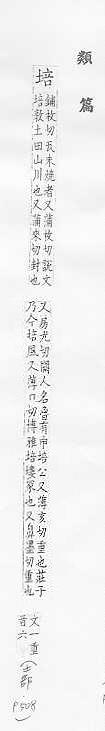 類篇
培
鋪枚切瓦未燒者又蒲枚切說文
培敦土田山川也又蒲來切封也
又房尤切闕人名晉有申培公又薄亥切重也莊子
乃今培風又薄口切博雅培塿冢也又鼻墨切重也
文一重
音六
(土部.
p.508)